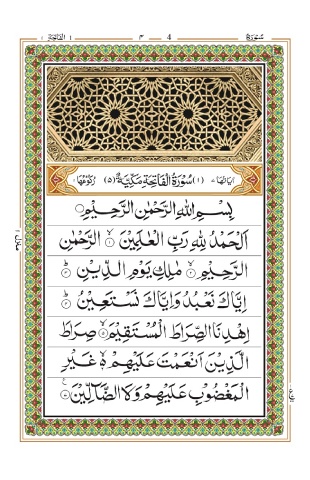 سُوْرَة ١ ٣ 4 ١ الفاتحة
اٰيَاتُهَا ٧ (١) سُوْرَةُ الْفَاتِحَةِ مَكِّيَّةٌ (٥) رُكُوْعُهَا
بِسْمِ اللهِ الرَّحْمٰنِ الرَّحِيْمِ
اَلْحَمْدُ لِلّٰهِ رَبِّ الْعٰلَمِيْنَ ۙ الرَّحْمٰنِ
الرَّحِيْمِ ۙ مٰلِكِ يَوْمِ الدِّيْنِ ؕ
اِيَّاكَ نَعْبُدُ وَاِيَّاكَ نَسْتَعِيْنُ ؕ
اِهْدِنَا الصِّرَاطَ الْمُسْتَقِيْمَ ۙ صِرَاطَ
الَّذِيْنَ اَنْعَمْتَ عَلَيْهِمْ ۙ غَيْرِ
الْمَغْضُوْبِ عَلَيْهِمْ وَلَا الضَّآلِّيْنَ
منزل ١